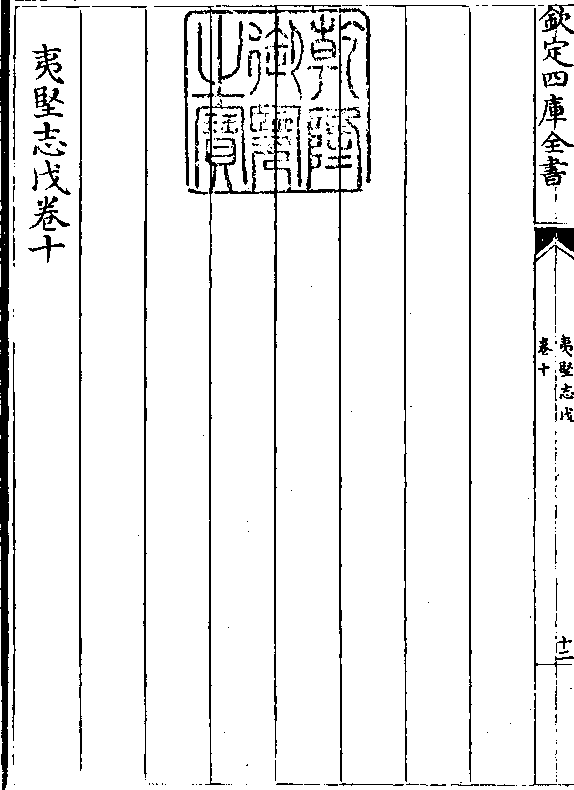 欽定四庫全書
夷堅志戊
卷十
十二
乾隆
御覽
之寶
夷堅志戊卷十